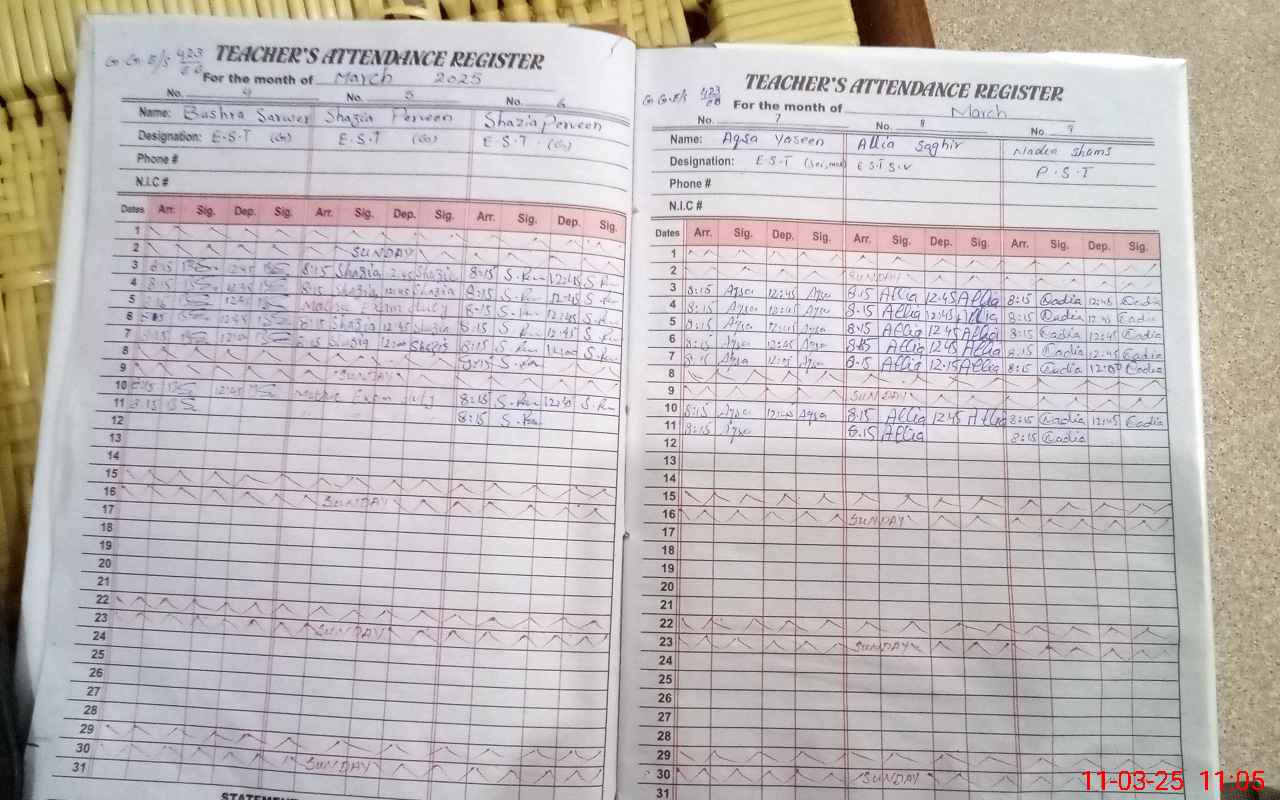 G.G.E/S 423/EB TEACHER'S ATTENDANCE REGISTER
For the month of March 2025
No. 4 No. 5 No. 6
Name: Bushra Sarwer Shazia Perveen Shazia Perveen
Designation: E.S.T (G) E.S.T (G) E.S.T. (G)
Phone #
N.I.C #
Dates Arr. Sig. Dep. Sig. Arr. Sig. Dep. Sig. Arr. Sig. Dep. Sig.
1
2 SUNDAY
3 8:15 12:45 8:15 Shazia 12:45 Shazia 8:15 12:45
4 8:15 12:45 8:15 Shazia 12:45 Shazia 8:15 12:45
5 8:15 12:45 Exam duty 8:15 12:45
6 8:15 12:45 8:15 Shazia 12:45 Shazia 8:15 12:45
7 8:15 12:00 8:15 Shazia 12:00 Shazia 8:15 12:00
8 8:15
9 SUNDAY
10 8:15 12:45 Exam duty 8:15
11 8:15 8:15
12
13
14
15
16 SUNDAY
17
18
19
20
21
22
23 SUNDAY
24
25
26
27
28
29
30 SUNDAY
31
G.G.E/S 423/EB TEACHER'S ATTENDANCE REGISTER
For the month of March
No. 7 No. 8 No. 9
Name: Aqsa Yaseen Allia Saghir Nadia Shams
Designation: E.S.T E.S.T S.V P.S.T
Phone #
N.I.C #
Dates Arr. Sig. Dep. Sig. Arr. Sig. Dep. Sig. Arr. Sig. Dep. Sig.
1
2 SUNDAY
3 8:15 Aqsa 12:45 Aqsa 8.15 Allia 12.45 Allia 8:15 12:45
4 8:15 Aqsa 12:45 Aqsa 8.15 Allia 12.45 Allia 8:15 12:45
5 8:15 Aqsa 12:45 Aqsa 8.15 Allia 12.45 Allia 8:15 12:45
6 8:15 Aqsa 12:45 Aqsa 8.15 Allia 12.45 Allia 8:15 12:45
7 8:15 Aqsa Aqsa 8.15 Allia 12.15 Allia 8:15 12:00
8
9 SUNDAY
10 8:15 Aqsa 12:45 Aqsa 8.15 Allia 12.45 Allia 8:15 12:45
11 8:15 Aqsa 8.15 Allia 8:15
12
13
14
15
16 SUNDAY
17
18
19
20
21
22
23 SUNDAY
24
25
26
27
28
29
30 SUNDAY
31
11-03-25 11:05